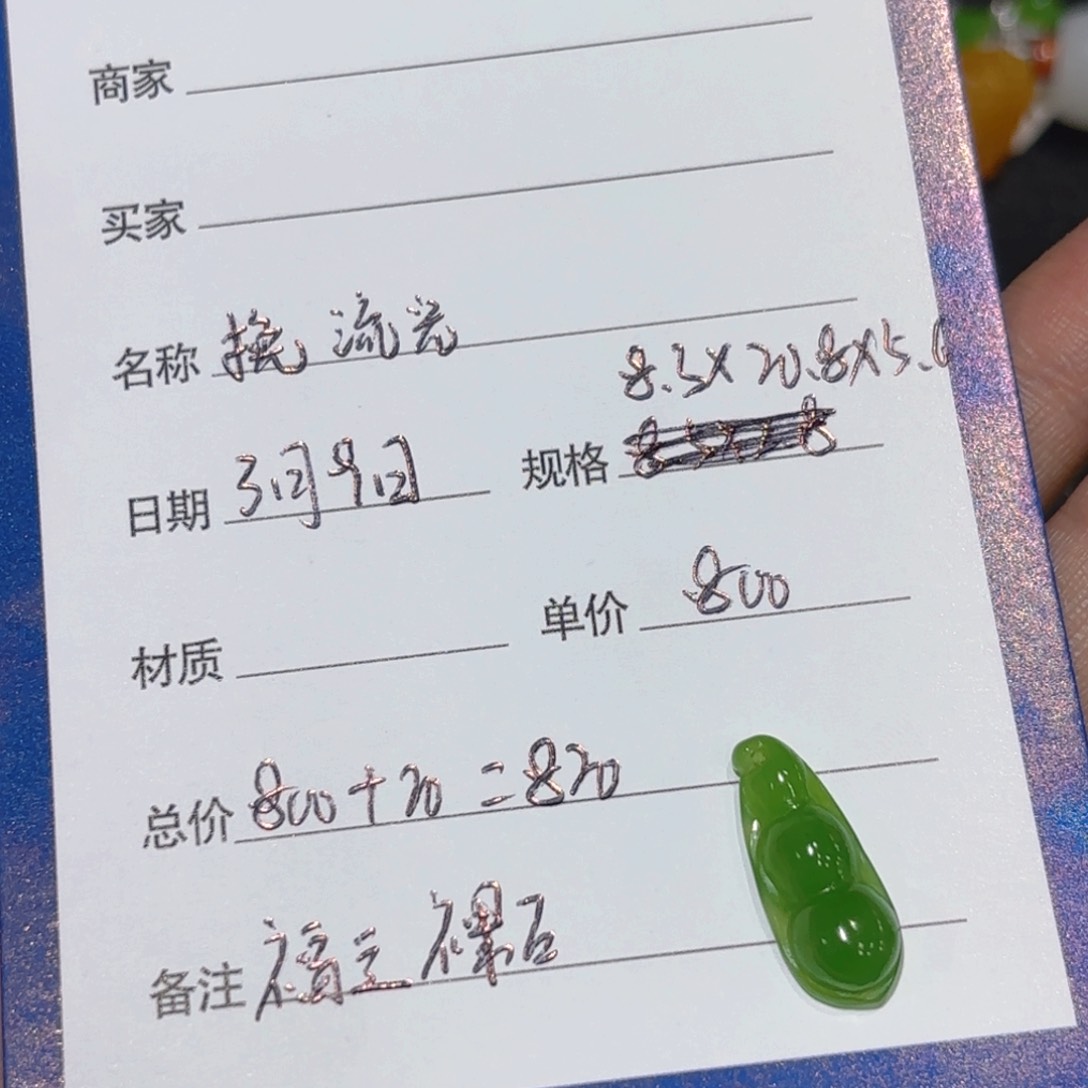 商家
买家
名称 挽流光
日期 3月9日 规格 8.5×20.8×5.0
材质 单价 800
总价 800+20=820
备注 福豆裸石